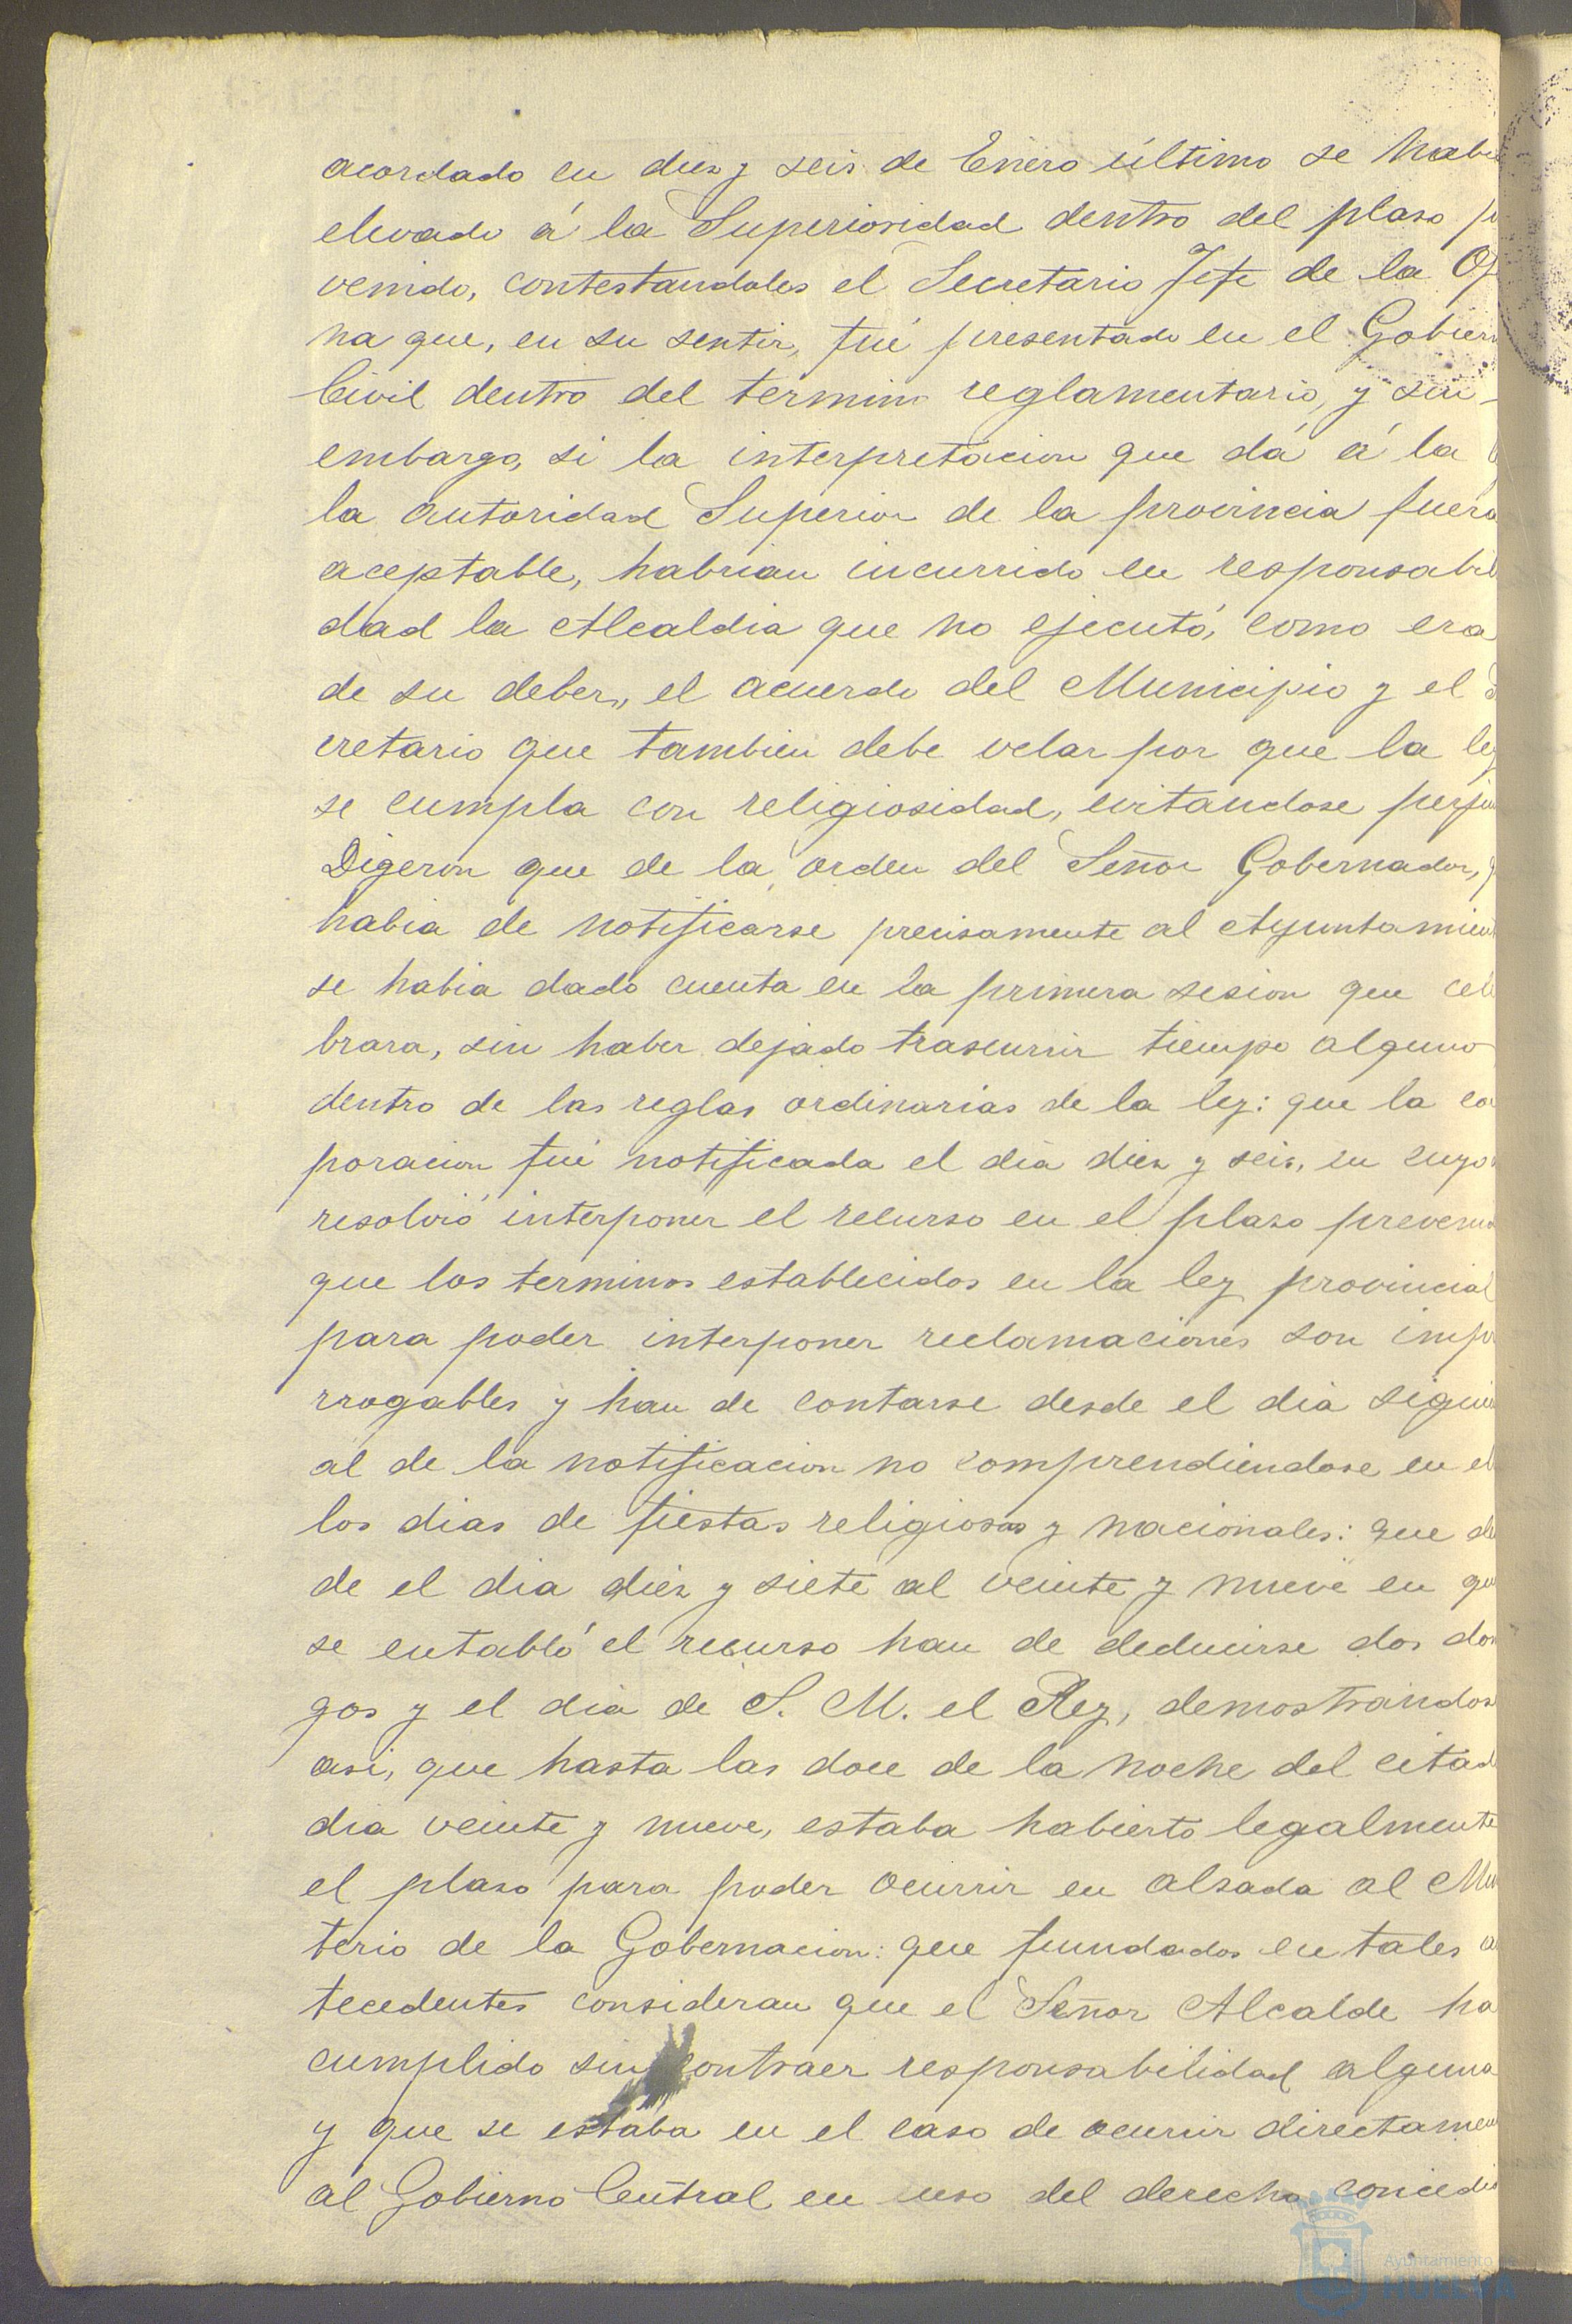 acordado en diez y seis de Enero último se habi
elevado á la Superioridad dentro del plaso p
venido, contestandoles el Secretario Jefe de la Ofi
na que, en su sentir, fué presentado en el Gobiern
Civil dentro del termino reglamentario, y sin
embargo, si la interpretacion que dá á la
la autoridad Superior de la provincia fuera
aceptable, habrian incurrido en responsabil
dad la Alcaldia que no ejecutó, como era
de su deber, el acuerdo del Municipio y el S
cretario que tambien debe velar por que la ley
se cumpla con religiosidad, evitandose perjui
Digeron que de la orden del Señor Gobernador, q
habia de notificarse precisamente al Ayuntamient
se habia dado cuenta en la primera sesion que cele
brara, sin haber dejado trascurrir tiempo alguno
dentro de las reglas ordinarias de la ley: que la co
poracion fué notificada el dia diez y seis, en cuyo
resolvió interponer el recurso en el plaso preveni
que los terminos establecidos en la ley provincial
para poder interponer reclamaciones son impr
rrogables y han de contarse desde el dia siguie
al de la notificacion no comprendiendose en el
los dias de fiestas religiosas y nacionales: que de
de el dia diez y siete al veinte y nueve en que
se entabló el recurso han de deducirse dos dom
gos y el dia de S. M. el Rey, demostrandos
asi, que hasta las doce de la noche del citad
dia veinte y nueve, estaba habierto legalmente
el plaso para poder ocurrir en alsada al Min
terio de la Gobernacion: que fundados en tales a
tecedentes consideran que el Señor Alcalde ha
cumplido sin contraer responsabilidad alguna
y que se estaba en el caso de ocurrir directamen
al Gobierno Central en uso del derecho concedi
Ayuntamiento de
HUELVA